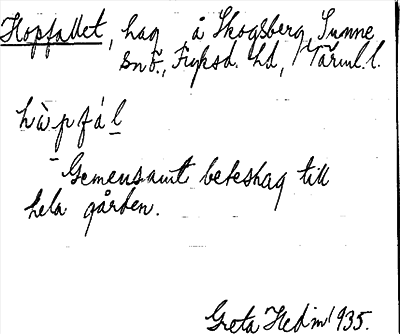 Hopfallet, hag å Skogsberg, Sunne
snö., Fryksd. hd, Värml. l.
hàpfál
Gemensamt beteshag till
hela gården.
Greta Hedin 1935.